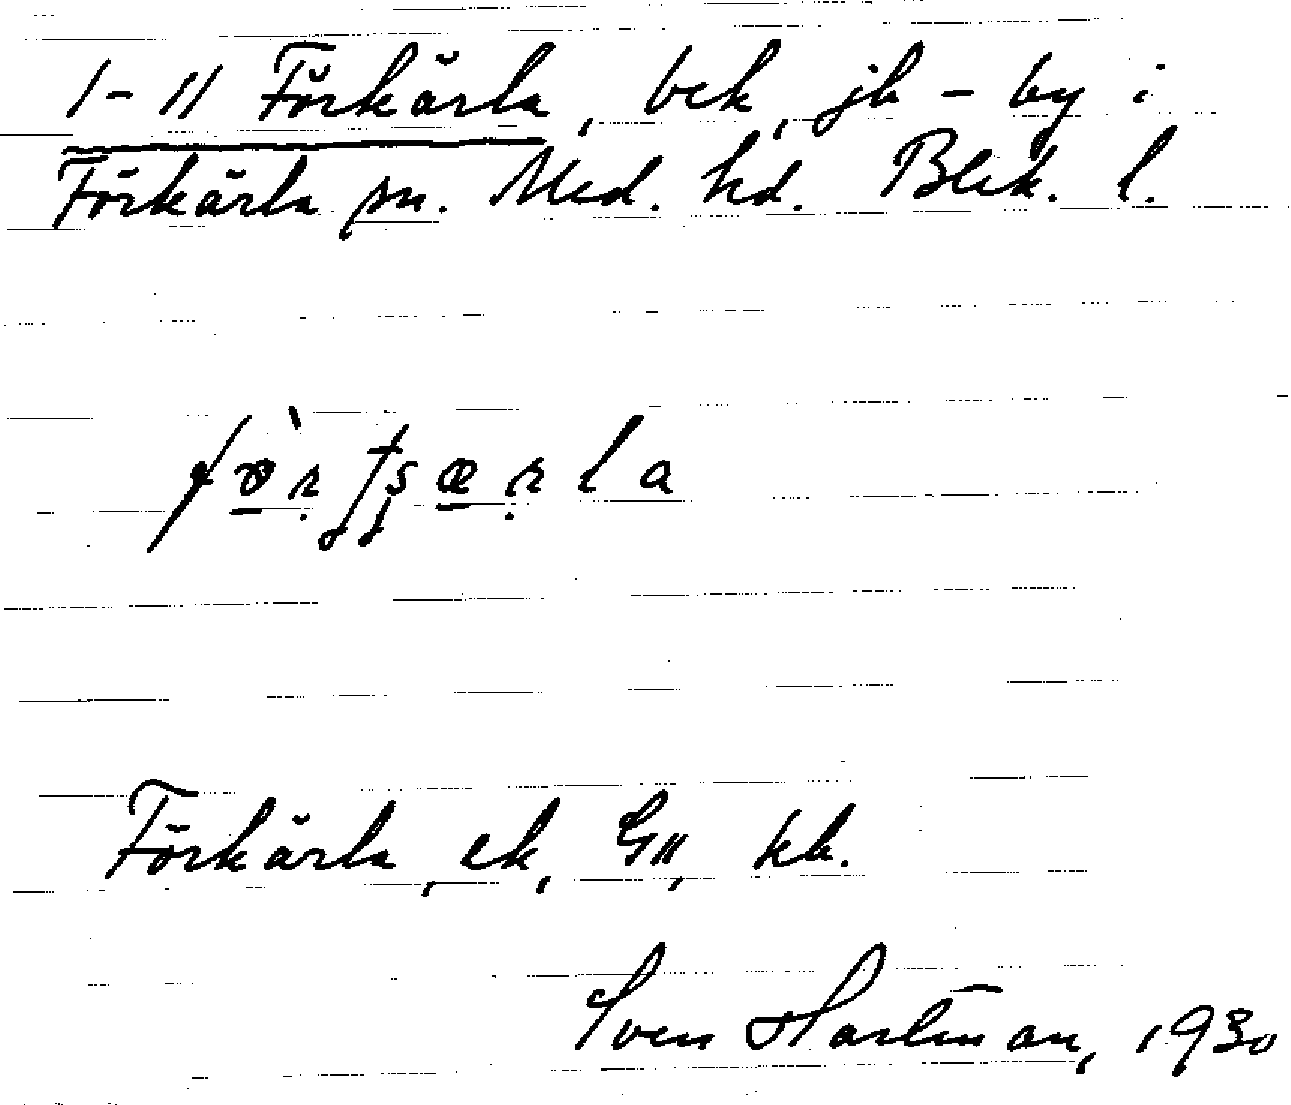 1-11 Förkärla, bek, jb-by i
Förkärla sn. Med. hd. Blek. l.
Förkärla, ek, G11, kb.
Sven Hartman, 1930